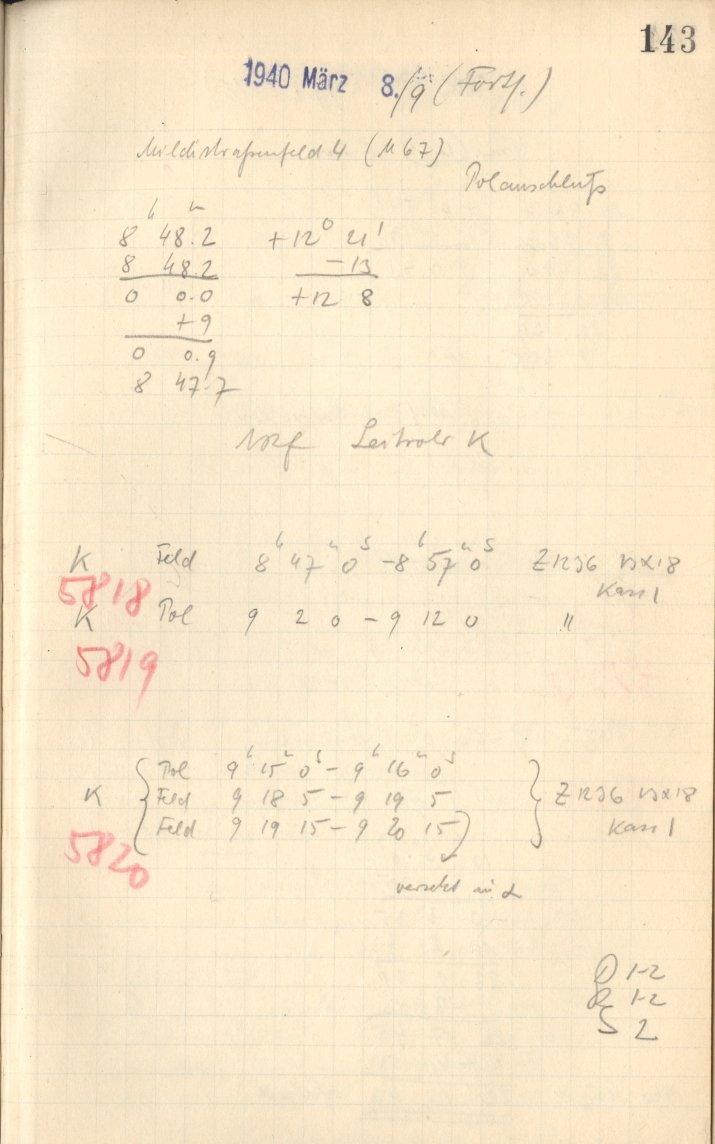 143
1940 März 8./9 (Forts.)
Milchstraßenfeld 4 (M 67)
Polanschluß
8h 48.2m +12° 21'
8 48.2 -13
0 0.0 +12 8
+9
0 0.9
8 47.7
Leitrohr K
K Feld 8h 47m 0s - 8h 57m 0s ZRJ6 13x18
5818 Kass 1
K Pol 9 2 0 - 9 12 0 "
5819
Pol 9h 15m 0s - 9h 16m 0s
K Feld 9 18 5 - 9 19 5 ZRJ6 13x18
Feld 9 19 15 - 9 20 15 Kass 1
5820
versetzt in α
D 1-2
R 1-2
S 2